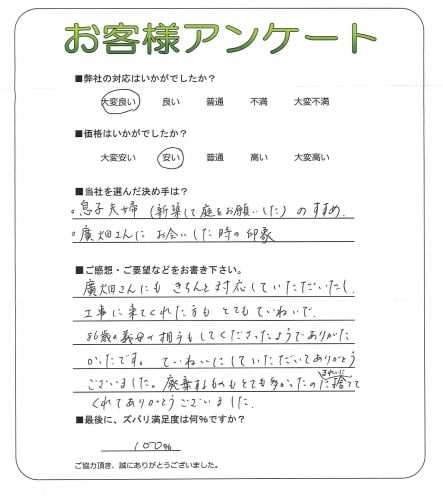 お客様アンケート
■弊社の対応はいかがでしたか?
大変良い 良い 普通 不満 大変不満
■価格はいかがでしたか?
大変安い 安い 普通 高い 大変高い
■当社を選んだ決め手は?
○息子夫婦(新築して庭をお願いした)のすすめ.
○廣畑さんに お会いした時の印象
■ご感想・ご要望などをお書き下さい。
廣畑さんにも きちんと対応していただいたし.
工事に来てくれた方も とてもていねいで.
86歳の義母の相手もしてくださったようでありがた
かったです。 ていねいにしていただいてありがとう
ございました。廃棄するものもとても多かったのに捨てて
きれいに
くれてありがとうございました.
■最後に、ズバリ満足度は何%ですか?
100%
ご協力頂き、誠にありがとうございました。